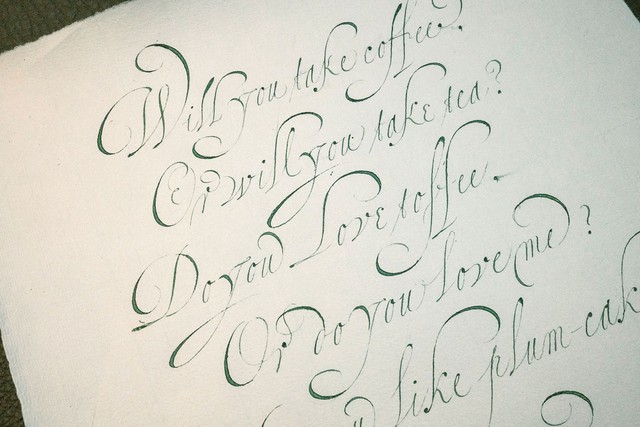 Will you take coffee?
Or will you take tea?
Do you Love toffee.
Or do you love me?
like plum-cak